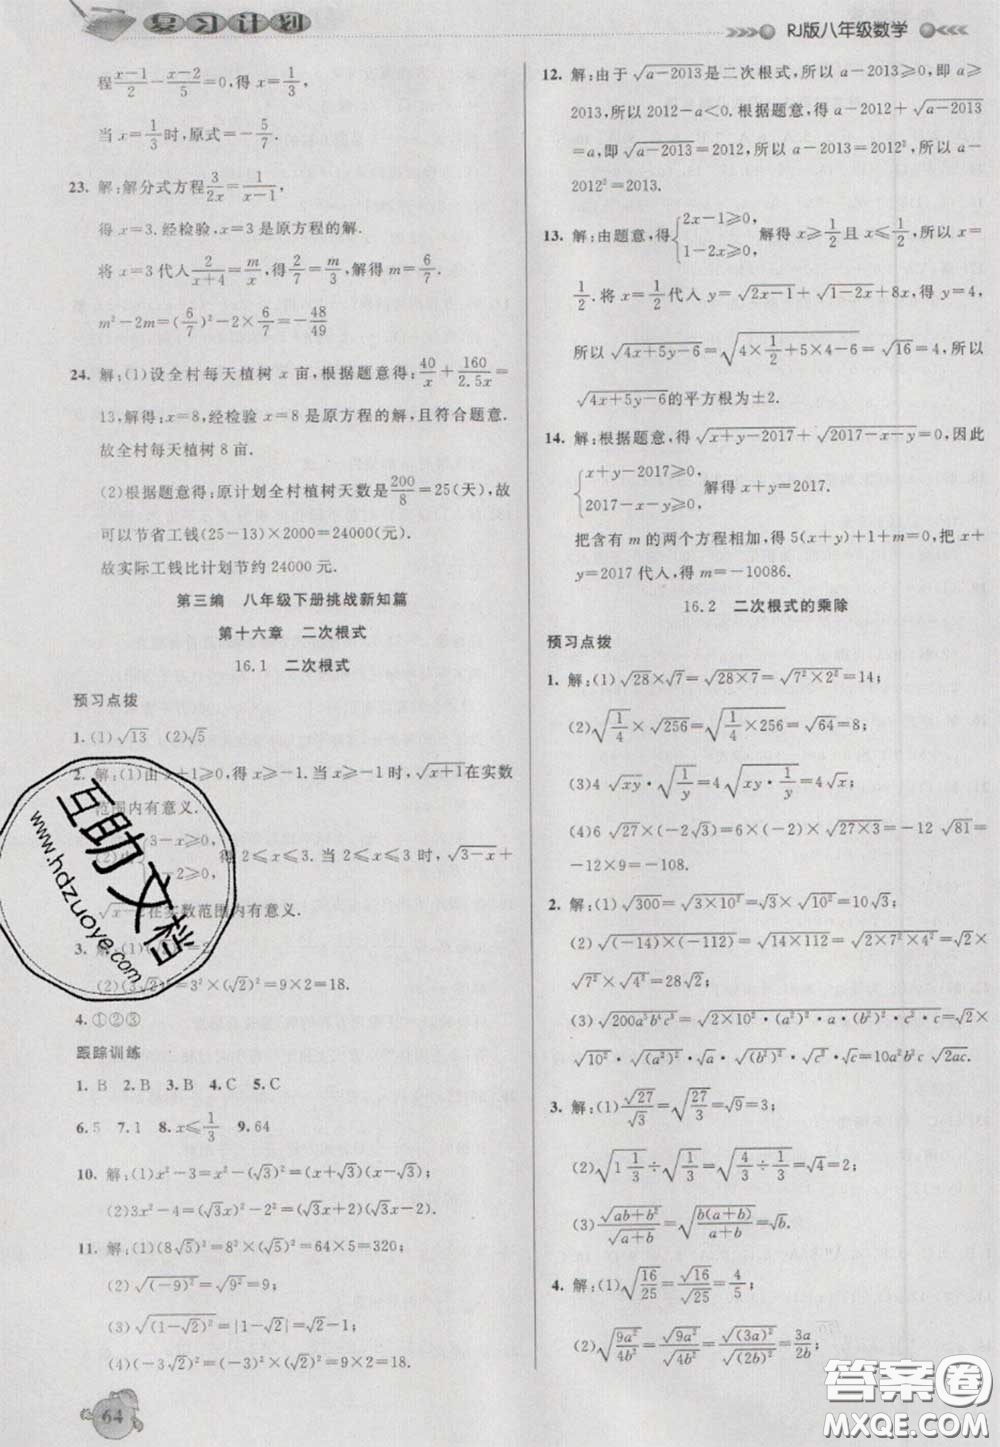 复习计划
RJ版八年级数学
程(x−1)/2−(x−2)/5=0,得 x=1/3,
当 x=1/3时,原式=−5/7.
23. 解:解分式方程3/(2x)=1/(x−1),
得 x=3.经检验,x=3是原方程的解.
将 x=3代人2/(x+4)=m/x,得2/7=m/3,解得 m=6/7.
m²−2m=(6/7)²−2×6/7=−48/49
24. 解:(1)设全村每天植树 x 亩,根据题意得:40/x+160/(2.5x)=
13,解得:x=8,经检验 x=8 是原方程的解,且符合题意.
故全村每天植树8亩.
(2)根据题意得:原计划全村植树天数是200/8=25(天),故
可以节省工钱(25−13)×2000=24000(元).
故实际工钱比计划节约24000元.
第三编 八年级下册挑战新知篇
第十六章 二次根式
16.1 二次根式
预习点拨
1.(1)√13 (2)√5
2. 解:(1)由x+1⩾0,得 x⩾−1.当 x⩾−1时,√(x+1)在实数
范围内有意义.
3−x⩾0,
⩾0, 得 2⩽x⩽3.当2⩽x⩽3 时,√(3−x)+
在实数范围内有意义.
3. 解:(1)
(2)(3√2)²=3²×(√2)²=9×2=18.
4.①②③
跟踪训练
1.B 2.B 3.B 4.C 5.C
6.5 7.1 8.x⩽1/3 9.64
10. 解:(1)x²−3=x²−(√3)²=(x+√3)(x−√3);
(2)3x²−4=(√3x)²−2²=(√3x+2)(√3x−2).
11. 解:(1)(8√5)²=8²×(√5)²=64×5=320;
(2)√((−9)²)=√(9²)=9;
(3)√((1−√2)²)=|1−√2|=√2−1;
(4)(−3√2)²=(−3)²×(√2)²=9×2=18.
64
12. 解:由于√(a−2013)是二次根式,所以 a−2013⩾0,即 a⩾
2013,所以2012−a<0.根据题意,得 a−2012+√(a−2013)
=a,即√(a−2013)=2012,所以 a−2013=2012²,所以 a−
2012²=2013.
13. 解:由题意,得{2x−1⩾0, 1−2x⩾0,解得 x⩾1/2且 x⩽1/2,所以 x=
1/2.将 x=1/2代人 y=√(2x−1)+√(1−2x)+8x,得 y=4,
所以√(4x+5y−6)=√(4×1/2+5×4−6)=√16=4,所以
√(4x+5y−6)的平方根为±2.
14. 解:根据题意,得√(x+y−2017)+√(2017−x−y)=0,因此
{x+y−2017⩾0, 2017−x−y⩾0. 解得 x+y=2017.
把含有 m 的两个方程相加,得5(x+y)+1+m=0,把 x+y
=2017代人,得 m=−10086.
16.2 二次根式的乘除
预习点拨
1. 解:(1)√28×√7=√(28×7)=√(7²×2²)=14;
(2)√(1/4)×√256=√(1/4×256)=√64=8;
(3)4√(xy)·√(1/y)=4√(xy·1/y)=4√x;
(4)6√27×(−2√3)=6×(−2)×√(27×3)=−12√81=
−12×9=−108.
2. 解:(1)√300=√(3×10²)=√3×√(10²)=10√3;
(2)√((−14)×(−112))=√(14×112)=√(2×7²×4²)=√2×
√(7²)×√(4²)=28√2;
(3)√(200a⁵b⁴c³)=√(2×10²·(a²)²·a·(b²)²·c²·c)=√2×
√(10²)·√((a²)²)·√a·√((b²)²)·√(c²)·√c=10a²b²c√(2ac).
3. 解:(1)√27/√3=√(27/3)=√9=3;
(2)√(1 1/3)÷√(1/3)=√(4/3÷1/3)=√4=2;
(3)√(ab+b²)/√(a+b)=√(b(a+b)/(a+b))=√b.
4. 解:(1)√(16/25)=√16/√25=4/5;
(2)√(9a²/4b²)=√(9a²)/√(4b²)=√((3a)²)/√((2b)²)=3a/2b;
互助文档
www.hdzuoye.com
答案圈
MXQE.COM